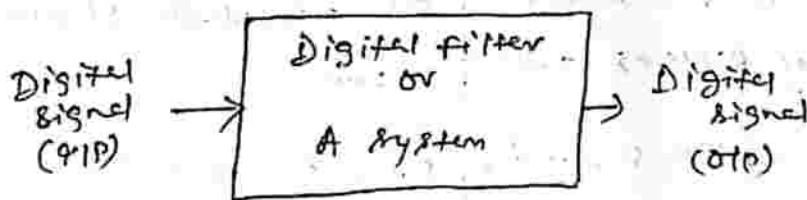 Digital
signal
(I/P)
Digital filter
or
A system
Digital
signal
(O/P)